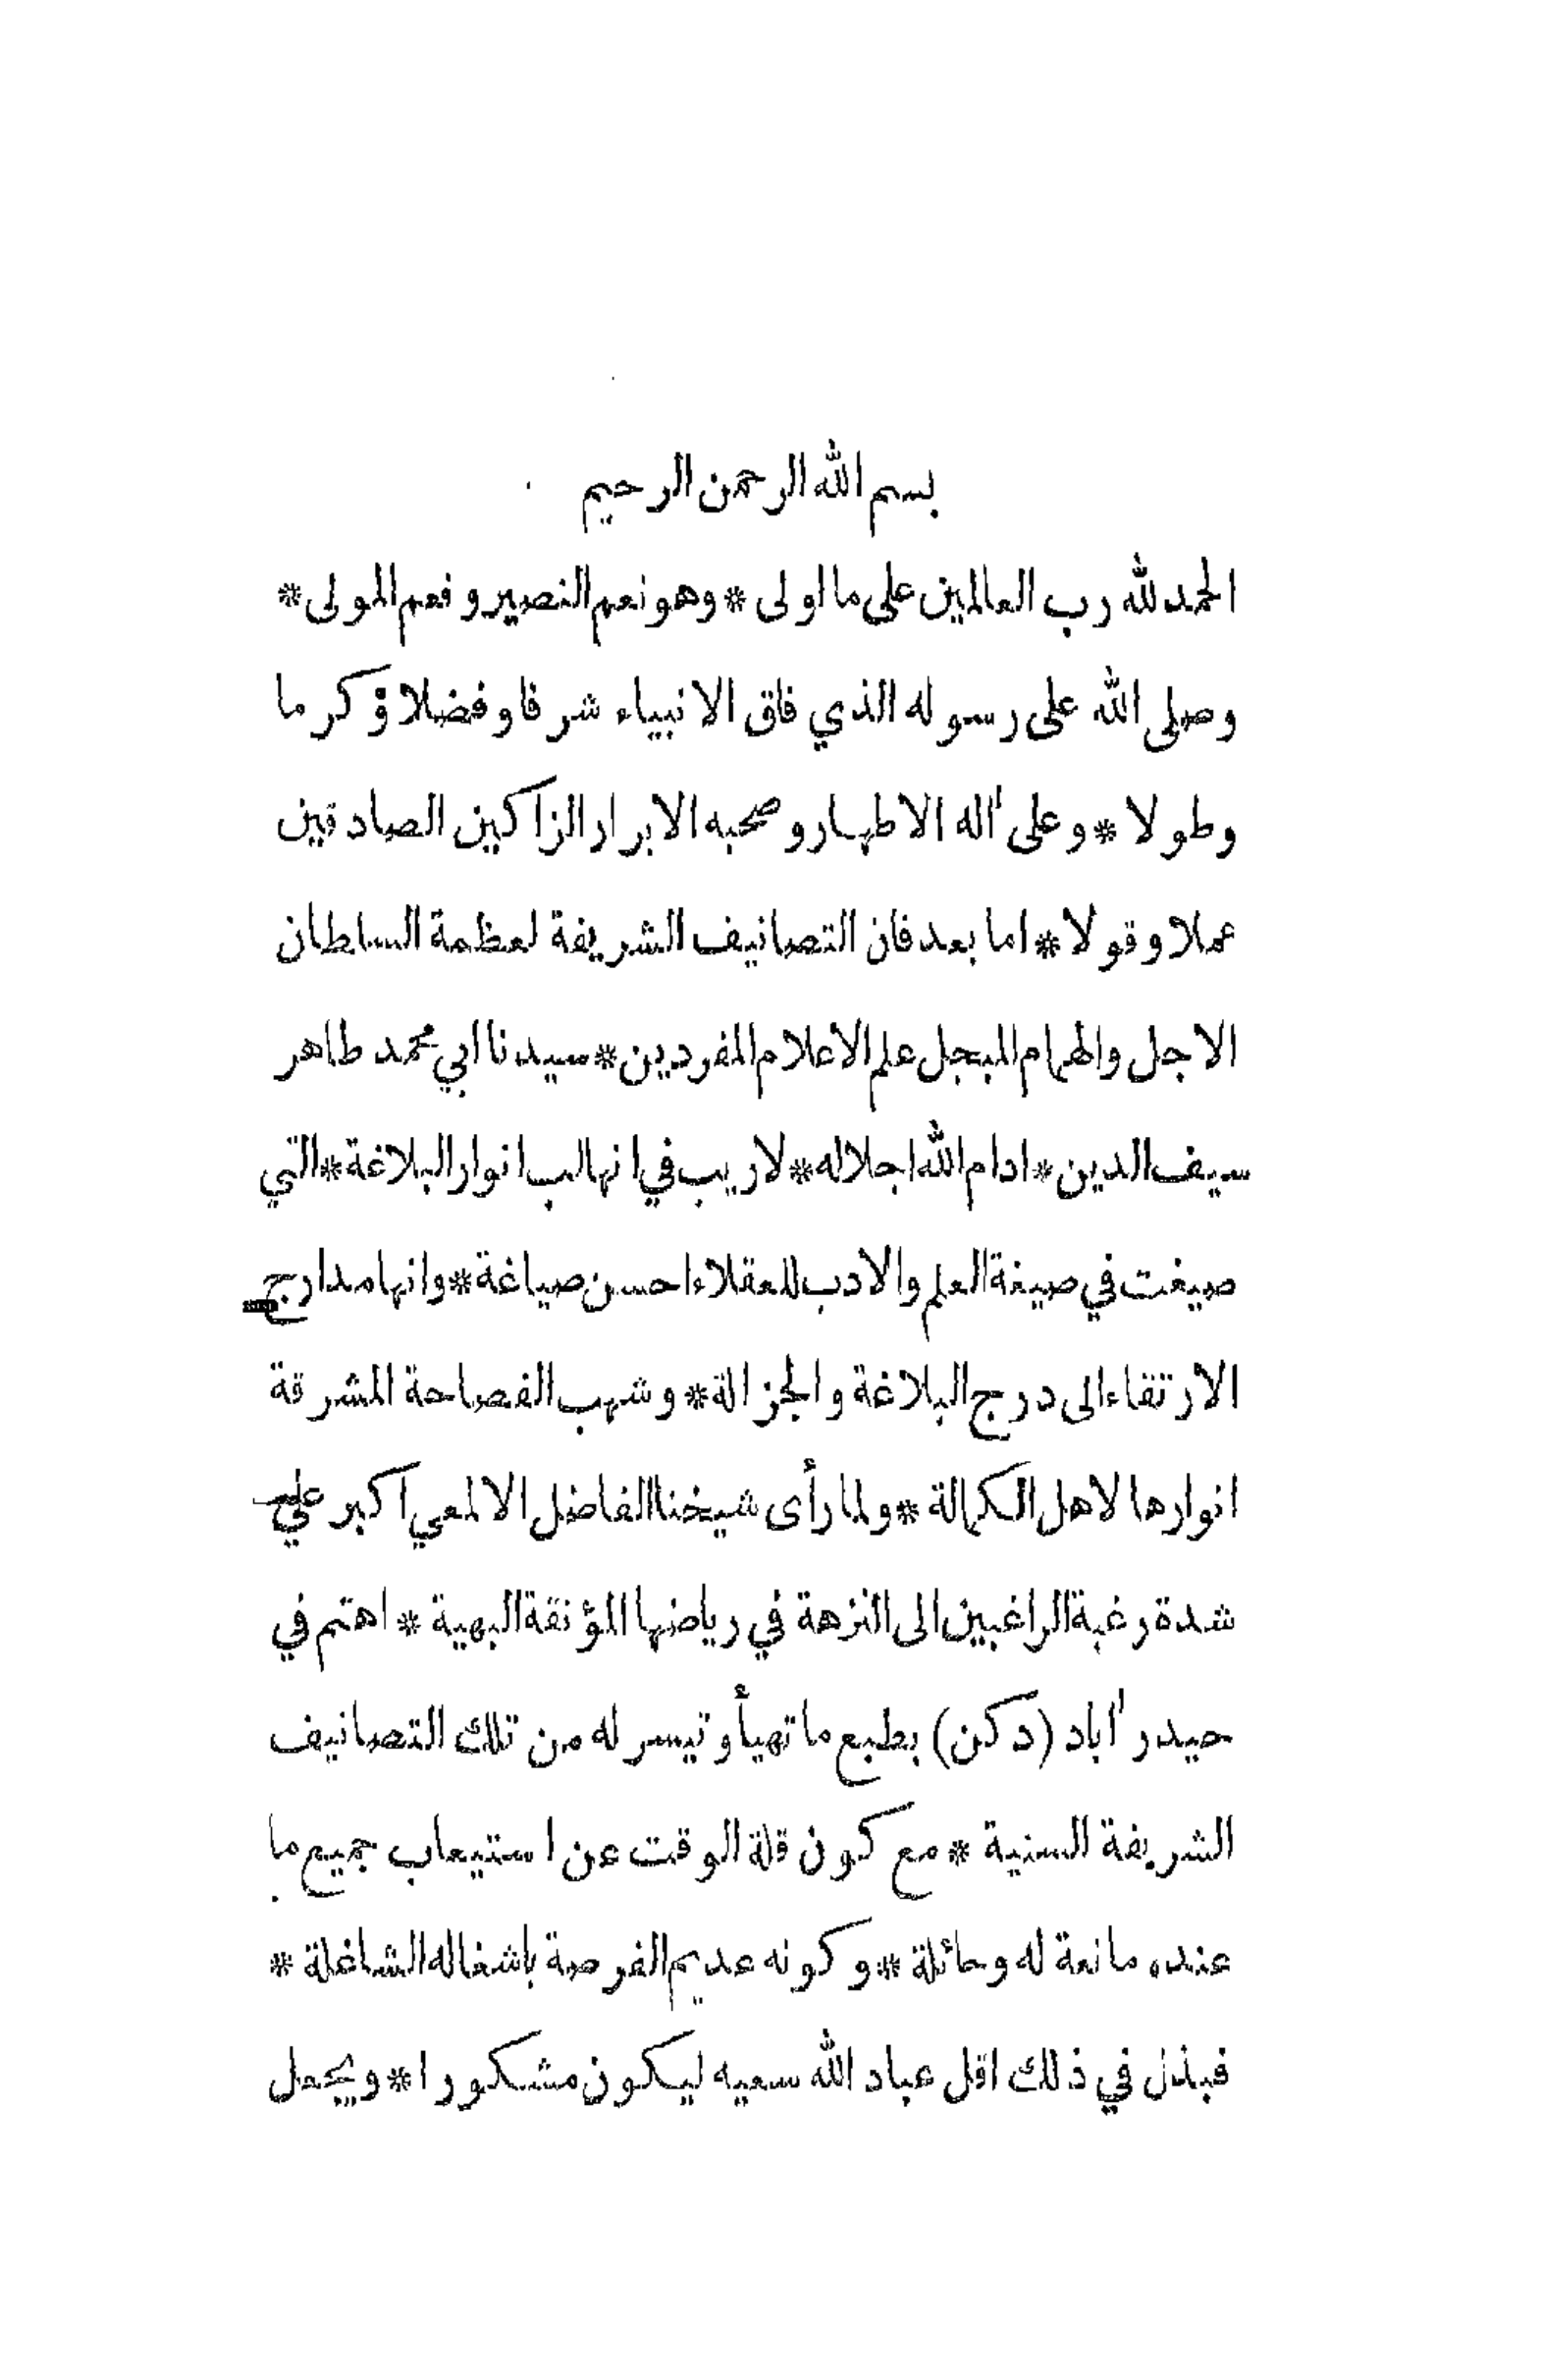 بسم الله الرحمن الرحيم
الحمد لله رب العالمين على ما اولى * وهو نعم النصير و فعم المولى *
وصلى الله على رسوله الذي فاق الانبياء شرفا وفضلا وكرما
وطولا * وعلى اٰله الاطهار وصحبه الابرار الزاكين الصادقين
عملا وقولا * اما بعد فان التصانيف الشريفة لعظمة السلطان
الاجل والهمام المبجل علم الاعلام المفردين * سيدنا ابي محمد طاهر
سيف الدين * ادام الله اجلاله * لاريب في انها لب انوار البلاغة * التي
صيغت في صيغة العلم والادب للعقلاء احسن صياغة * وانها مدارج
الارتقاء الى درج البلاغة والجزالة * وشهب الفصاحة المشرقة
انوارها لاهل الكمالة * ولما رأى شيخنا الفاضل الالمعي اكبر علي
شدة رغبة الراغبين الى النزهة في رياضها المؤنقة البهية * اهتم في
حيدر اٰباد (دكن) بطبع ما تهيأ وتيسر له من تلك التصانيف
الشريفة السنية * مع كون قلة الوقت عن استيعاب جميع ما
عنده مانعة له وحائلة * وكونه عديم الفرصة باشغاله الشاغلة *
فبذل في ذلك اقل عباد الله سعيه ليكون مشكورا * ويجعل